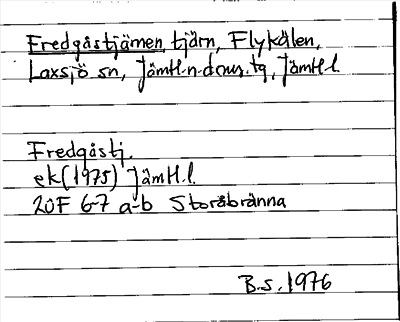 Fredgåstjämen tjärn, Flykälen,
Laxsjö sn, Jämtl.n.doms.tg, Jämtl.l.
Fredgåstj.
ek(1975) Jämtl.l.
20F 6-7 a-b Storåbränna
B.s.1976